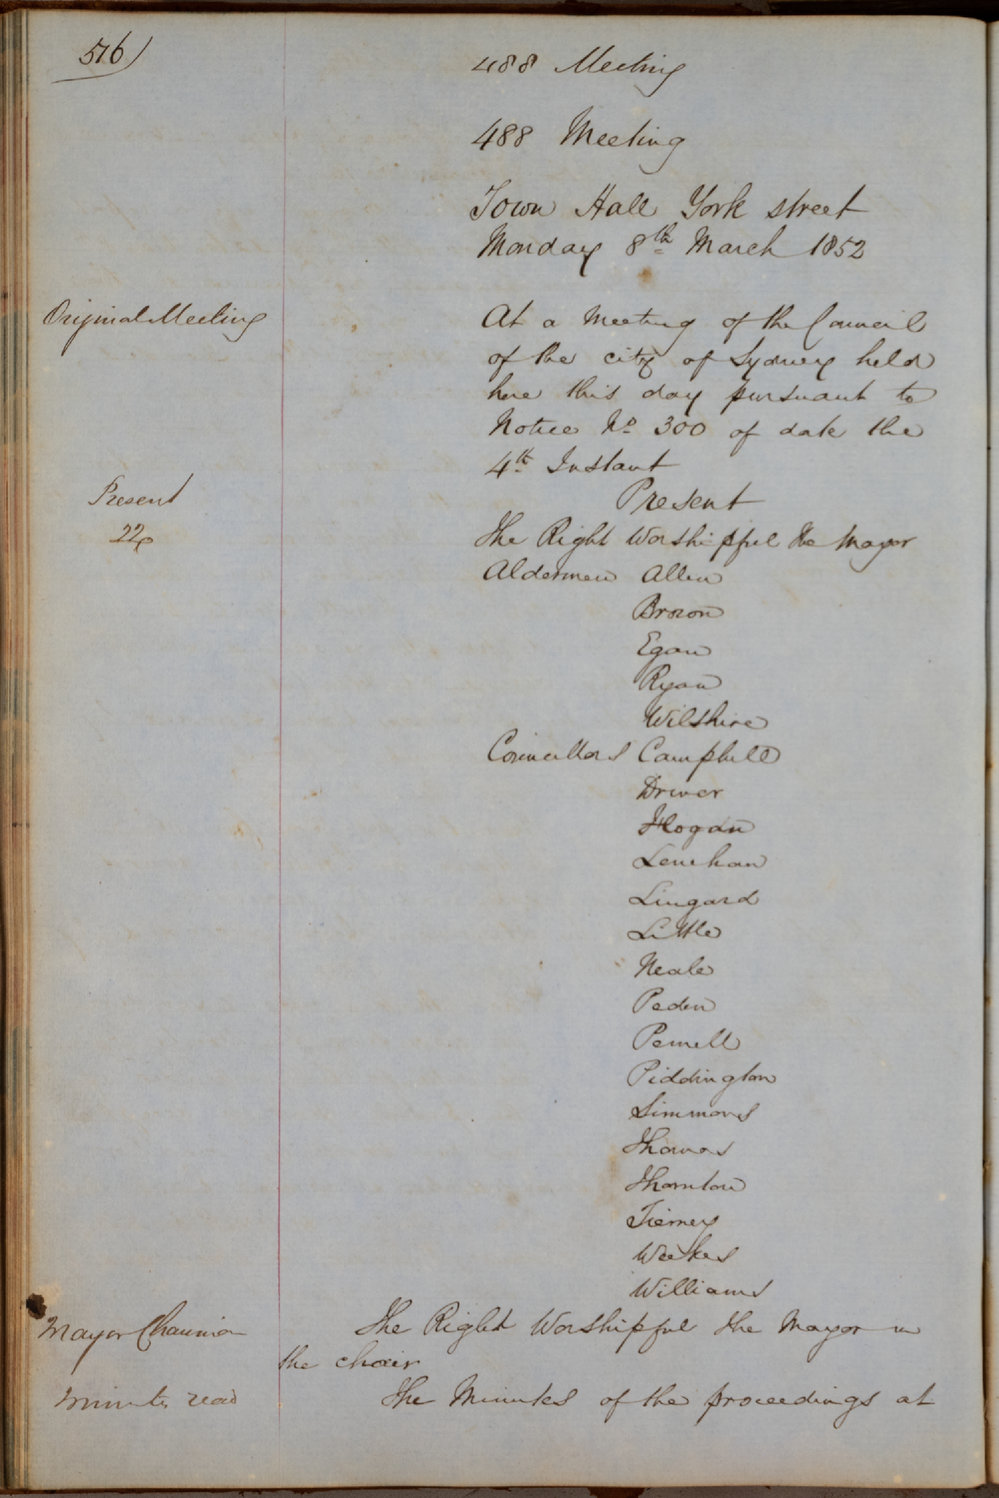 516)
488 Meeting
488 Meeting
Town Hall York street
Monday 8th March 1852
Original Meeting
At a Meeting of the Council
of the city of Sydney held
here this day pursuant to
Notice No 300 of date the
4th Instant
Present
22
Present
The Right Worshipful the Mayor
Aldermen Allen
Brown
Egan
Ryan
Wilshire
Councillors Campbell
Driver
Hogan
Lenehan
Lingard
Little
Neale
Peden
Pernell
Piddington
Simmons
Thomas
Thornton
Tierney
Weekes
Williams
Mayor Chairman
The Right Worshipful the Mayor in
the chair
Minutes read
The Minutes of the proceedings at